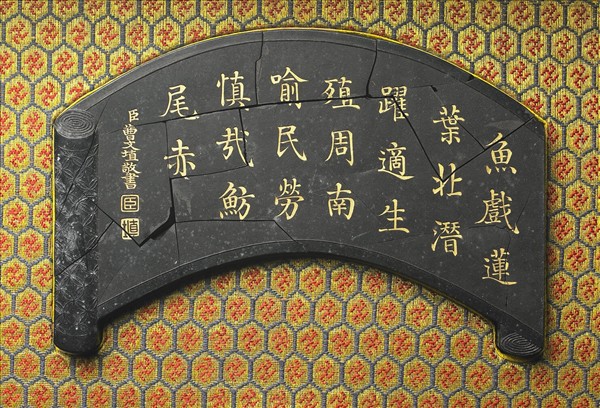 魚戲蓮
葉北潛
躍適生
殖周南
喻民勞
慎哉魴
尾赤
臣曹文埴敬書
臣
埴